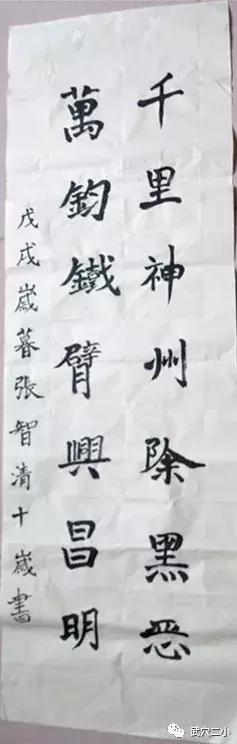 千里神州除黑恶
萬鈞鐵臂興昌明
戊戌嵗暮張智清十嵗書
武穴二小